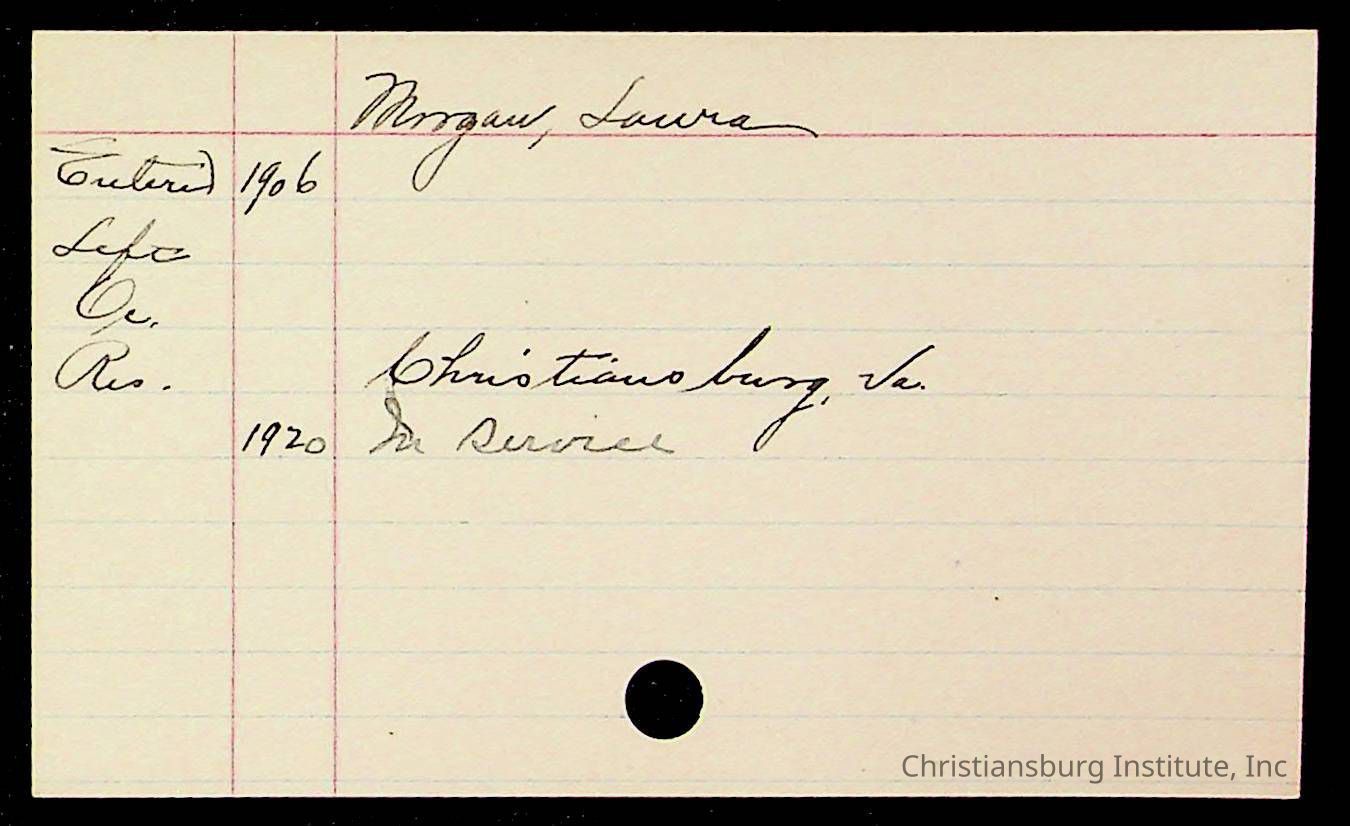 Morgan, Laura
Entered 1906
Left
Oc.
Res. Christiansburg, Va.
1920 In Service
Christiansburg Institute, Inc